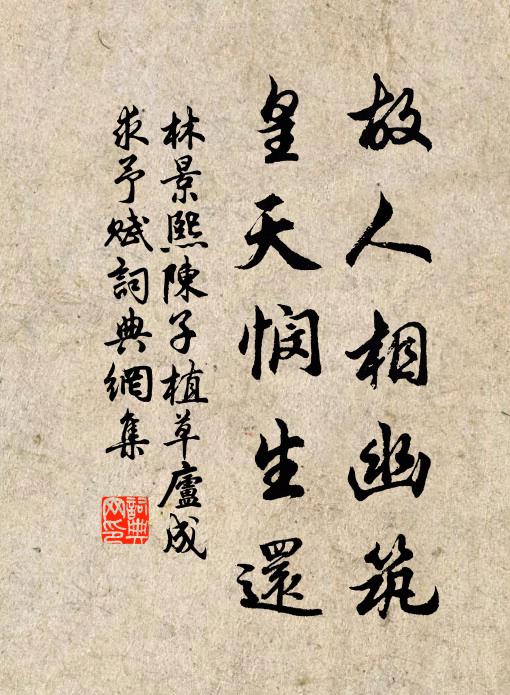 故人相幽筑
皇天悯生還
林景熙陳子植草廬成
求予賦詞典網集
詞典
网印